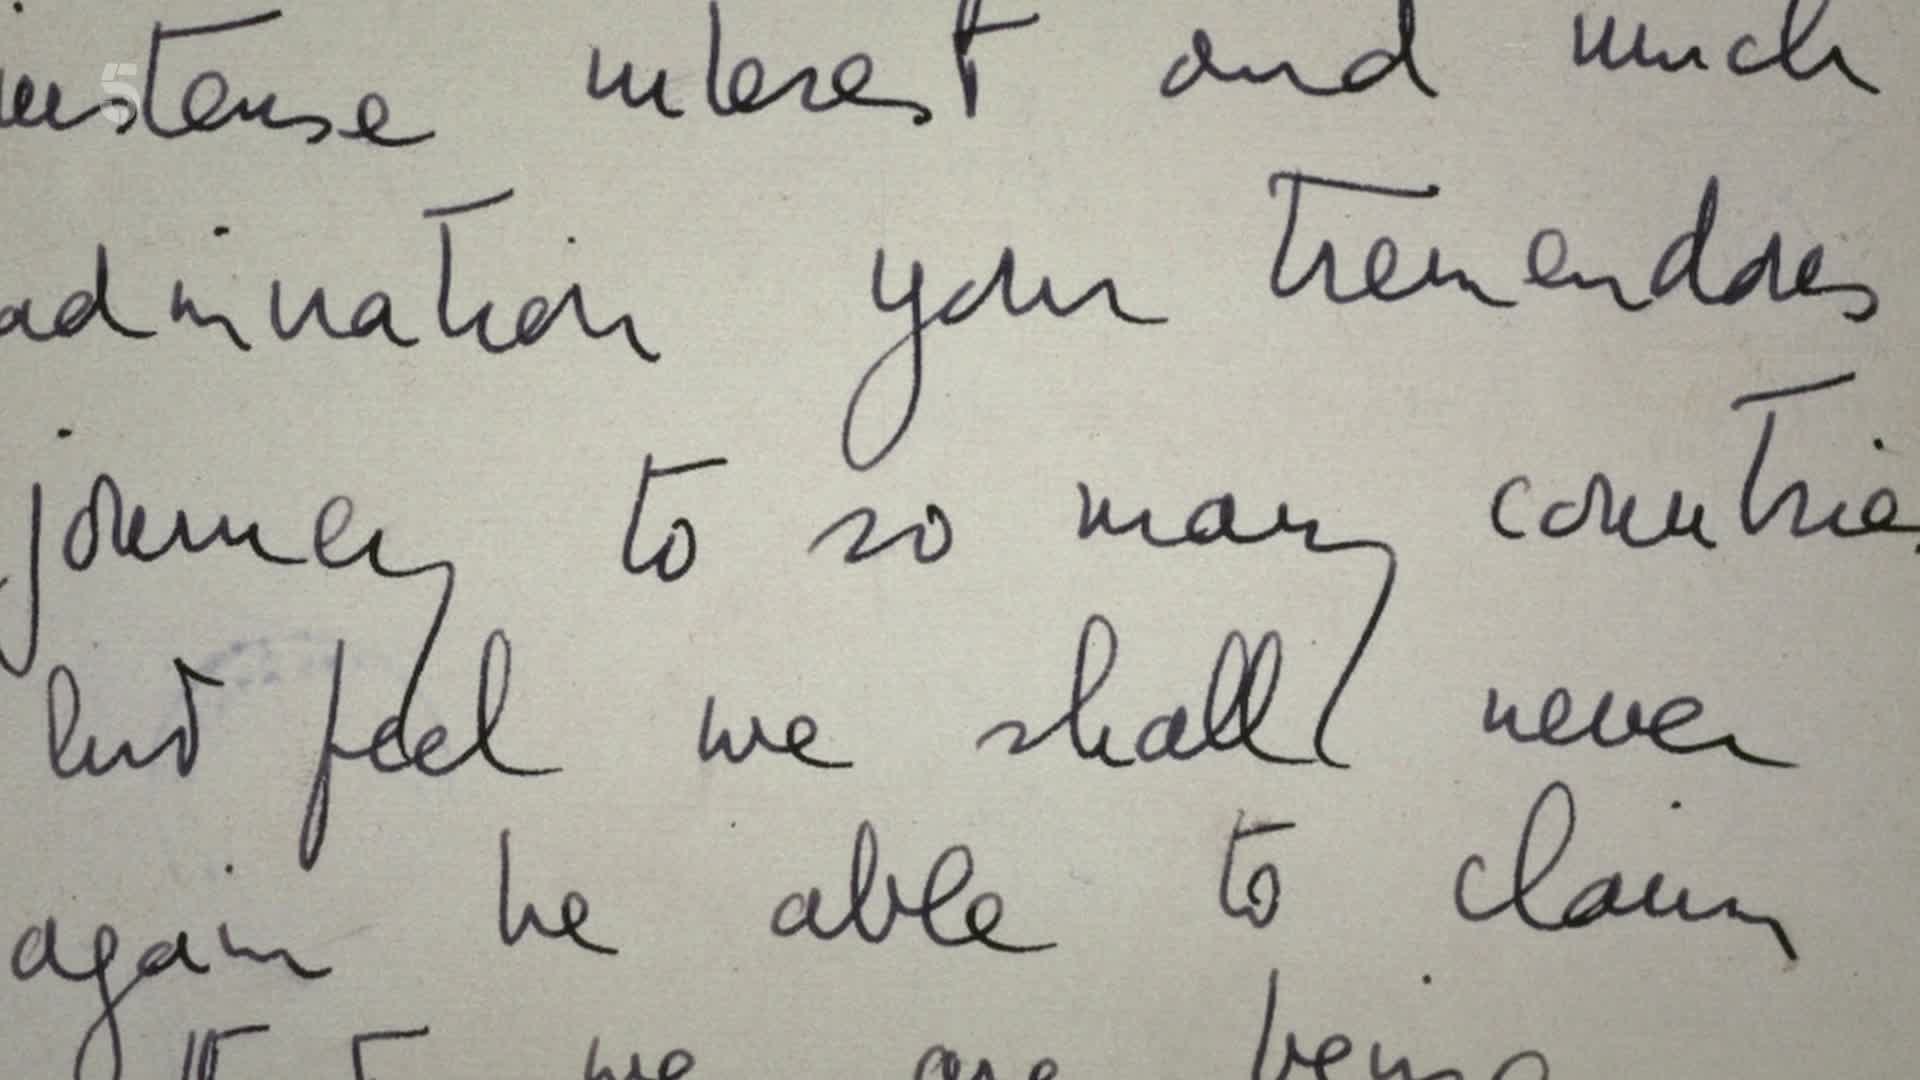 5
intense interest and much
admiration your tremendous
journey to so many countries
but feel we shall never
again be able to claim
that we are being